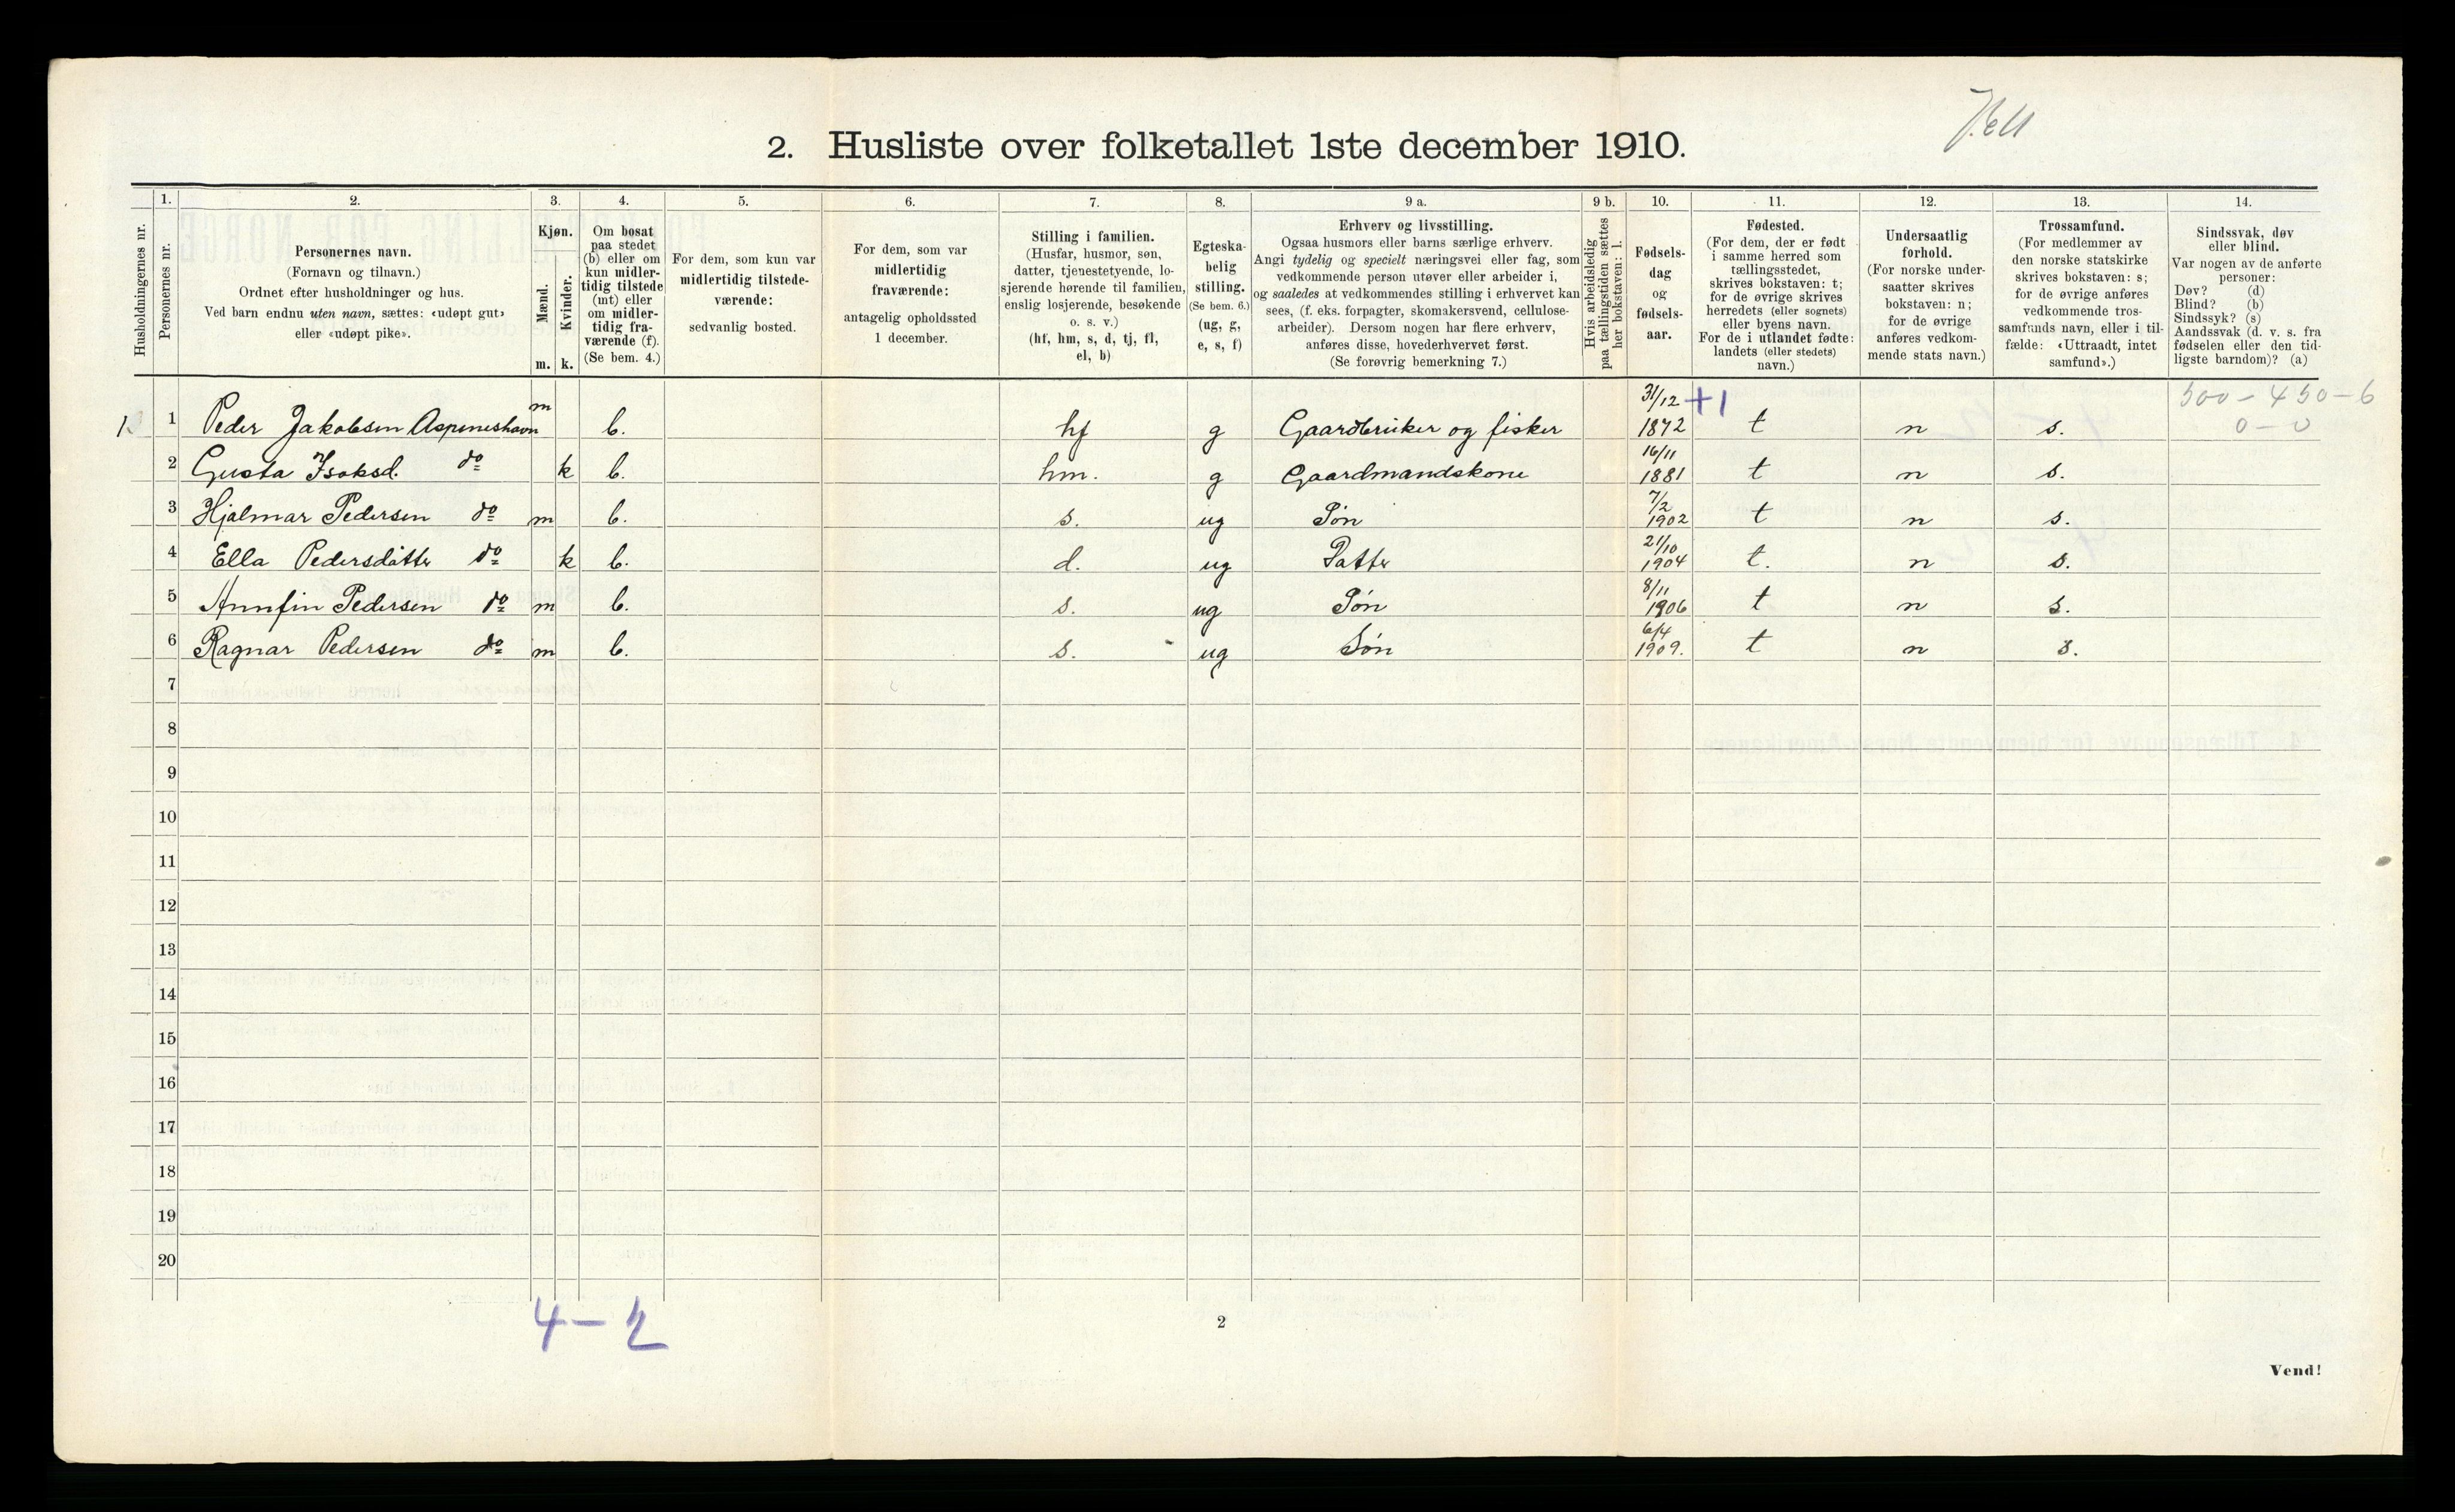 2. Husliste over folketallet 1ste december 1910.
Husholdningernes nr.
1.
Personernes nr.
2.
Personernes navn.
(Fornavn og tilnavn.)
Ordnet efter husholdninger og hus.
Ved barn endnu uten navn, sættes: «udøpt gut»
eller «udøpt pike».
3.
Kjøn.
Mænd.
m.
Kvinder.
k.
4.
Om bosat
paa stedet
(b) eller om
kun midler-
tidig tilstede
(mt) eller
om midler-
tidig fra-
værende (f).
(Se bem. 4.)
5.
For dem, som kun var
midlertidig tilstede-
værende:
sedvanlig bosted.
6.
For dem, som var
midlertidig
fraværende:
antagelig opholdssted
1 december.
7.
Stilling i familien.
(Husfar, husmor, søn,
datter, tjenestetyende, lo-
sjerende hørende til familien,
enslig losjerende, besøkende
o. s. v.)
(hf, hm, s, d, tj, fl,
el, b)
8.
Egteska-
belig
stilling.
(Se bem. 6.)
(ug, g,
e, s, f)
9 a.
Erhverv og livsstilling.
Ogsaa husmors eller barns særlige erhverv.
Angi tydelig og specielt næringsvei eller fag, som
vedkommende person utøver eller arbeider i,
og saaledes at vedkommendes stilling i erhvervet kan
sees, (f. eks. forpagter, skomakersvend, cellulose-
arbeider). Dersom nogen har flere erhverv,
anføres disse, hovederhvervet først.
(Se forøvrig bemerkning 7.)
9 b.
Hvis arbeidsledig
paa tællingstiden sættes
her bokstaven: l.
10.
Fødsels-
dag
og
fødsels-
aar.
11.
Fødested.
(For dem, der er født
i samme herred som
tællingsstedet,
skrives bokstaven: t;
for de øvrige skrives
herredets (eller sognets)
eller byens navn.
For de i utlandet fødte:
landets (eller stedets)
navn.)
12.
Undersaatlig
forhold.
(For norske under-
saatter skrives
bokstaven: n;
for de øvrige
anføres vedkom-
mende stats navn.)
13.
Trossamfund.
(For medlemmer av
den norske statskirke
skrives bokstaven: s;
for de øvrige anføres
vedkommende tros-
samfunds navn, eller i til-
fælde: «Uttraadt, intet
samfund».)
14.
Sindssvak, døv
eller blind.
Var nogen av de anførte
personer:
Døv? (d)
Blind? (b)
Sindssyk? (s)
Aandssvak (d. v. s. fra
fødselen eller den tid-
ligste barndom)? (a)
1 Peder Jakobsen Aspeneshavn m b. hf g Gaardbruker og fisker 31/12 1872 +1 t n s. 500 - 450 - 6
0 - 0
2 Gusta Isaksd. do k b. hm. g Gaardmandskone 16/11 1881 t n s.
3 Hjalmar Pedersen do m b. s. ug Søn 7/2 1902 t n s.
4 Ella Pedersdatter do k b. d. ug Datter 21/10 1904 t. n s.
5 Annfin Pedersen do m b. s. ug Søn 8/11 1906 t n s.
6 Ragnar Pedersen do m b. s. ug Søn 6/4 1909. t n s.
7
8
9
10
11
12
13
14
15
16
17
18
19
20
4 - 2
2
Vend!